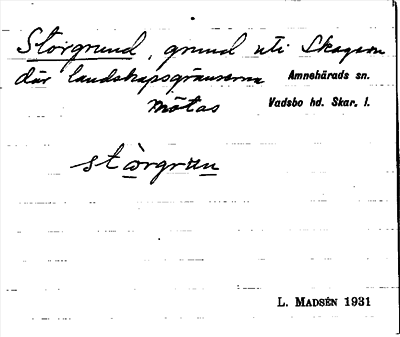 Storgrund, grund uti Skagern
där landskapsgränserna Amnehärads sn.
mötas Vadsbo hd. Skar. l.
stòrgrun
L. MADSÉN 1931